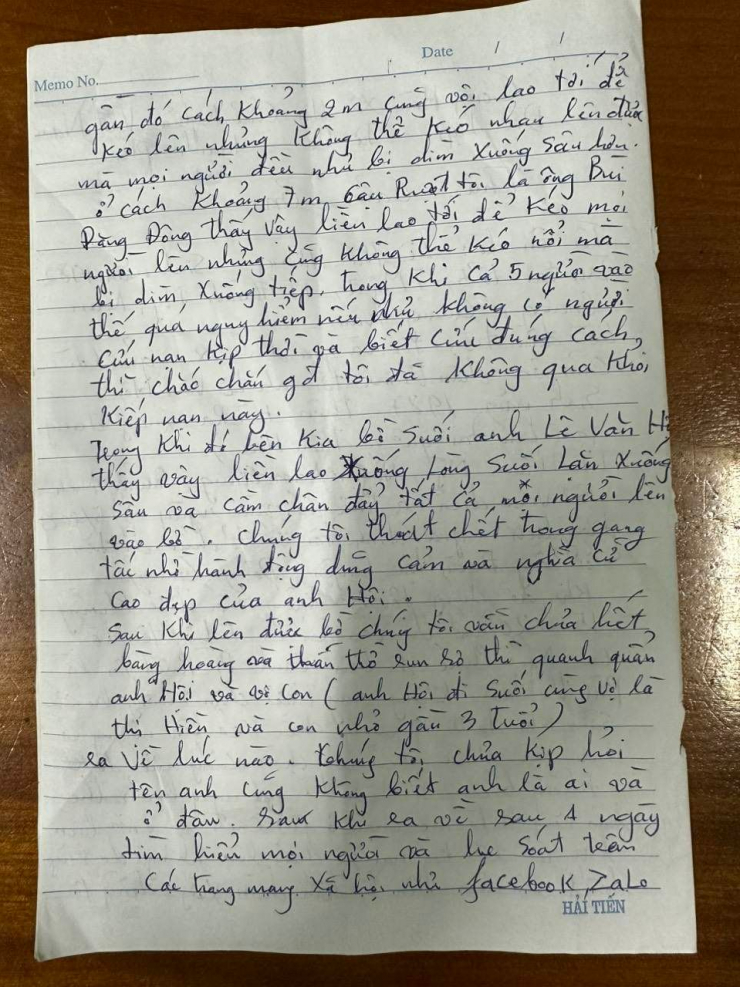 Date / /
Memo No.
gần đó cách khoảng 2m cũng vội lao tới để
kéo lên nhưng không thể kéo nhau lên được
mà mọi người đều như bị dìm xuống sâu hơn.
ở cách khoảng 7m cậu Ruột tôi là ông Bùi
Đăng Đông thấy vậy liền lao tới để kéo mọi
người lên nhưng cũng không thể kéo nổi mà
bị dìm xuống tiếp, trong khi cả 5 người vào
thế quá nguy hiểm nếu như không có người
cứu nạn kịp thời và biết cứu đúng cách,
thì chắc chắn gđ tôi đã không qua khỏi
kiếp nạn này.
Trong khi đó bên kia bờ suối anh Lê Văn H
thấy vậy liền lao xuống lòng suối lặn xuống
sâu và cầm chân đẩy tất cả mọi người lên
vào bờ. chúng tôi thoát chết trong gang
tấc nhờ hành động dũng cảm và nghĩa cử
cao đẹp của anh Hội.
Sau khi lên được bờ chúng tôi vẫn chưa hết
bàng hoàng và thẫn thờ run sợ thì quanh quẩn
anh Hội và vợ con (anh Hội đi suối cùng vợ là
thị Hiền và con nhỏ gần 3 tuổi)
ra về lúc nào. chúng tôi chưa kịp hỏi
tên anh cũng không biết anh là ai và
ở đâu. Sau khi ra về sau 1 ngày
tìm hiểu mọi người và lục soát trên
các trang mạng xã hội như facebook, Zalo
HẢI TIẾN